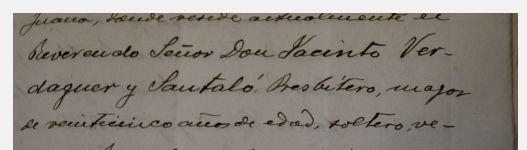 Juana, donde reside actualmente el
Reverendo Señor Don Jacinto Ver-
daguer y Santaló, Presbítero, mayor
de veinticinco años de edad, soltero, ve-